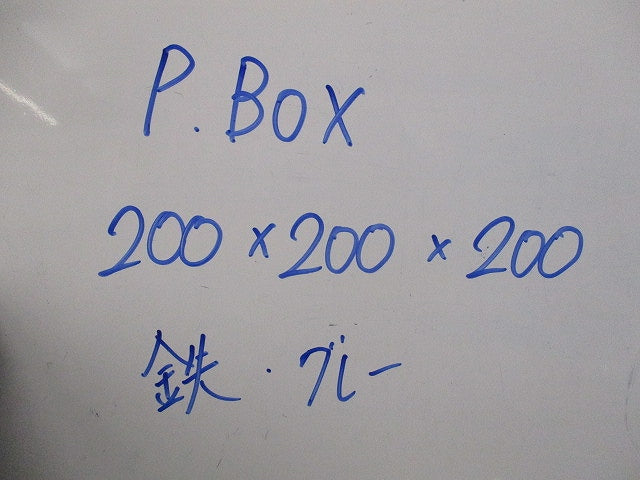 P.BOX
200×200×200
鉄・グレー